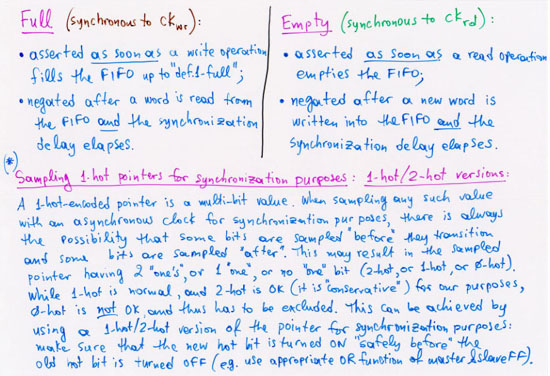 Full (synchronous to CKwr):
• asserted as soon as a write operation
fills the FIFO up to "def.1-full";
• negated after a word is read from
the FIFO and the synchronization
delay elapses.
Empty (synchronous to CKrd):
• asserted as soon as a read operation
empties the FIFO;
• negated after a new word is
written into the FIFO and the
synchronization delay elapses.
(*)
Sampling 1-hot pointers for synchronization purposes: 1-hot/2-hot versions:
A 1-hot-encoded pointer is a multi-bit value. When sampling any such value
with an asynchronous clock for synchronization purposes, there is always
the possibility that some bits are sampled "before" they transition
and some bits are sampled "after". This may result in the sampled
pointer having 2 "one's", or 1 "one", or no "one" bit (2-hot, or 1-hot, or ∅-hot).
While 1-hot is normal, and 2-hot is OK (it is "conservative") for our purposes,
∅-hot is not OK, and thus has to be excluded. This can be achieved by
using a 1-hot/2-hot version of the pointer for synchronization purposes:
make sure that the new hot bit is turned ON "safely before" the
old hot bit is turned OFF (e.g. use appropriate OR function of master & slave FF).